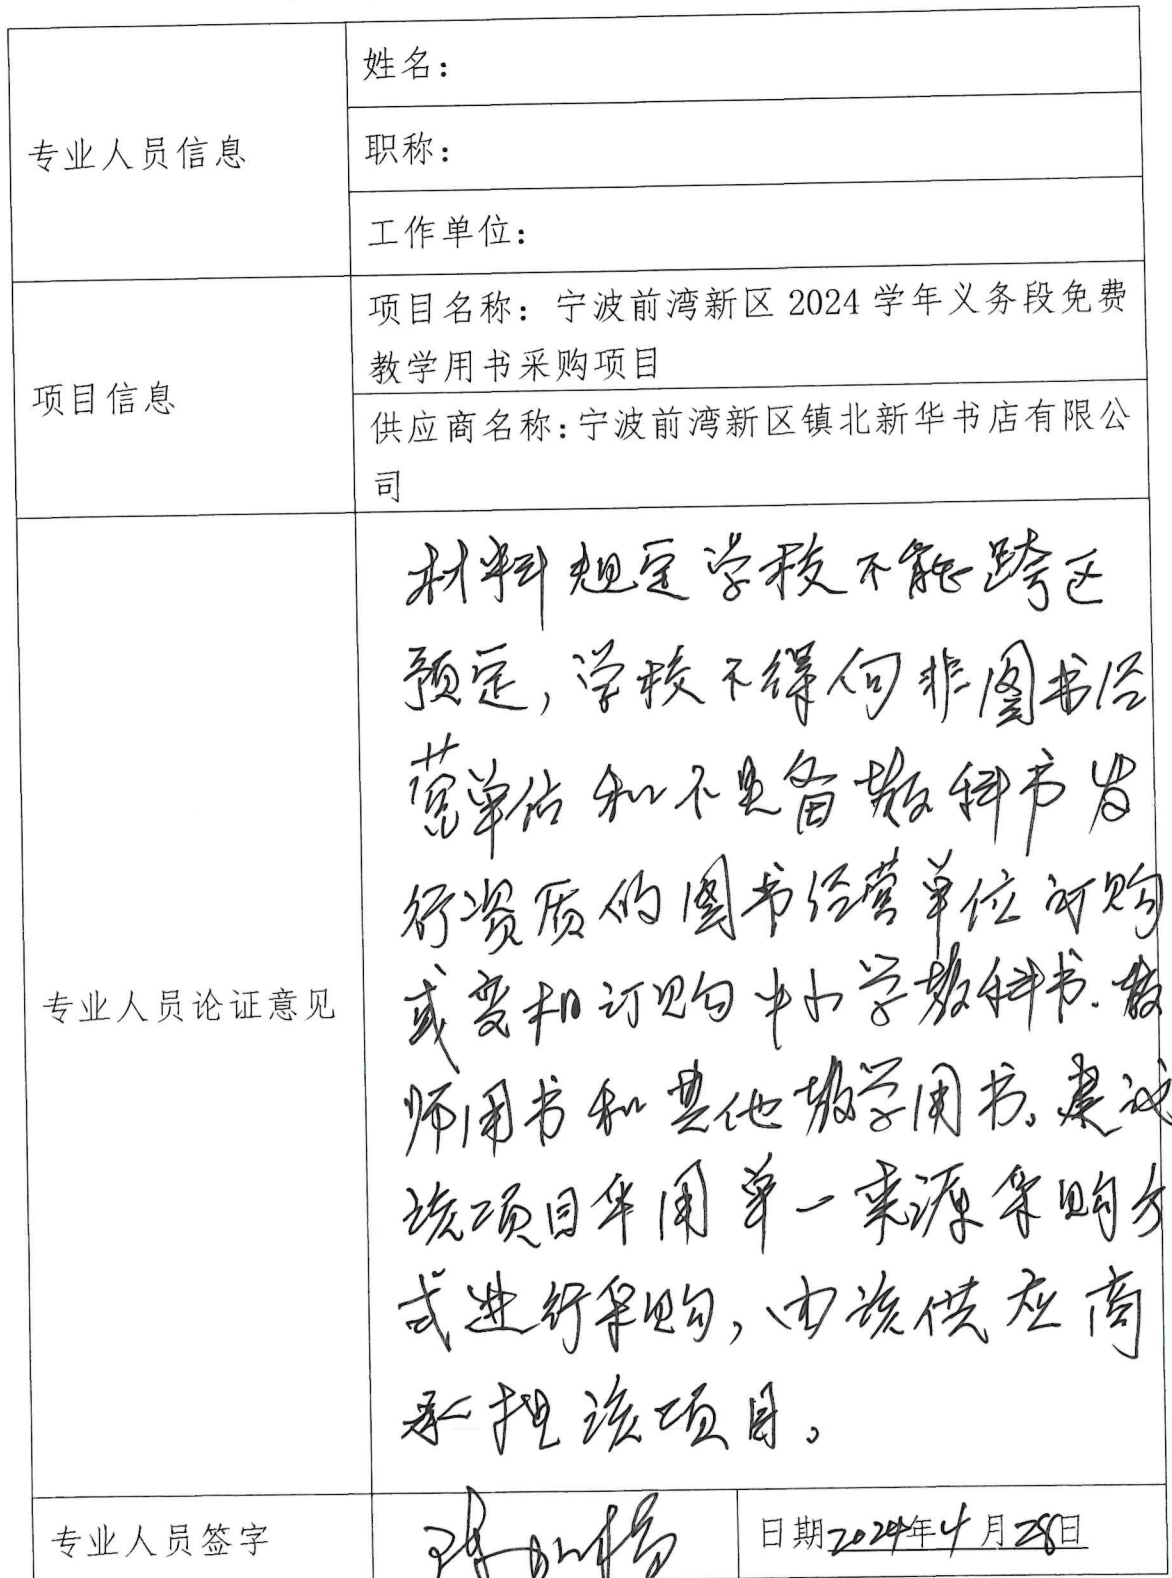 姓名：
专业人员信息
职称：
工作单位：
项目名称：宁波前湾新区 2024 学年义务段免费
教学用书采购项目
项目信息
供应商名称：宁波前湾新区镇北新华书店有限公
司
材料规定学校不能跨区
预定，学校不得向非图书经
营单位和不具备教科书发
行资质的图书经营单位订购
专业人员论证意见
或变相订购中小学教科书、教
师用书和其他教学用书。建议
该项目采用单一来源采购方
式进行采购，由该供应商
承担该项目。
专业人员签字
日期2024年4月28日